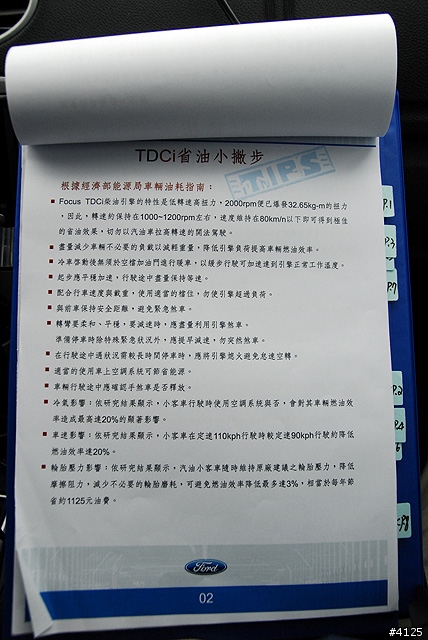 TDCi省油小撇步
TIPS
根據經濟部能源局車輛油耗指南：
Focus TDCi柴油引擎的特性是低轉速高扭力，2000rpm便已爆發32.65kg-m的扭力
，因此，轉速的保持在1000~1200rpm左右，速度維持在80km/h以下即可得到極佳
的省油效果，切勿以汽油車拉高轉速的開法駕駛。
盡量減少車輛不必要的負載以減輕重量，降低引擎負荷提高車輛燃油效率。
冷車啓動後無須於空檔加油門進行暖車，以緩步行駛可加速達到引擎正常工作溫度。
起步應平穩加速，行駛途中盡量保持等速。
配合行車速度與載重，使用適當的檔位，勿使引擎超過負荷。
與前車保持安全距離，避免緊急煞車。
轉彎要柔和、平穩，要減速時，應盡量利用引擎煞車。
準備停車時除特殊緊急狀況外，應提早減速，勿突然煞車。
在行駛途中遇狀況需較長時間停車時，應將引擎熄火避免怠速空轉。
適當的使用車上空調系統可節省能源。
車輛行駛途中應確認手煞車是否釋放。
冷氣影響：依研究結果顯示，小客車行駛時使用空調系統與否，會對其車輛燃油效
率造成最高達20%的顯著影響。
車速影響：依研究結果顯示，小客車在定速110kph行駛時較定速90kph行駛約降低
燃油效率達20%。
輪胎壓力影響：依研究結果顯示，汽油小客車隨時維持原廠建議之輪胎壓力，降低
摩擦阻力，減少不必要的輪胎磨耗，可避免燃油效率降低最多達3%，相當於每年節
省約1125元油費。
Ford
02
P.1
P.3
P.7
P.2
P.4
P.8
#4125